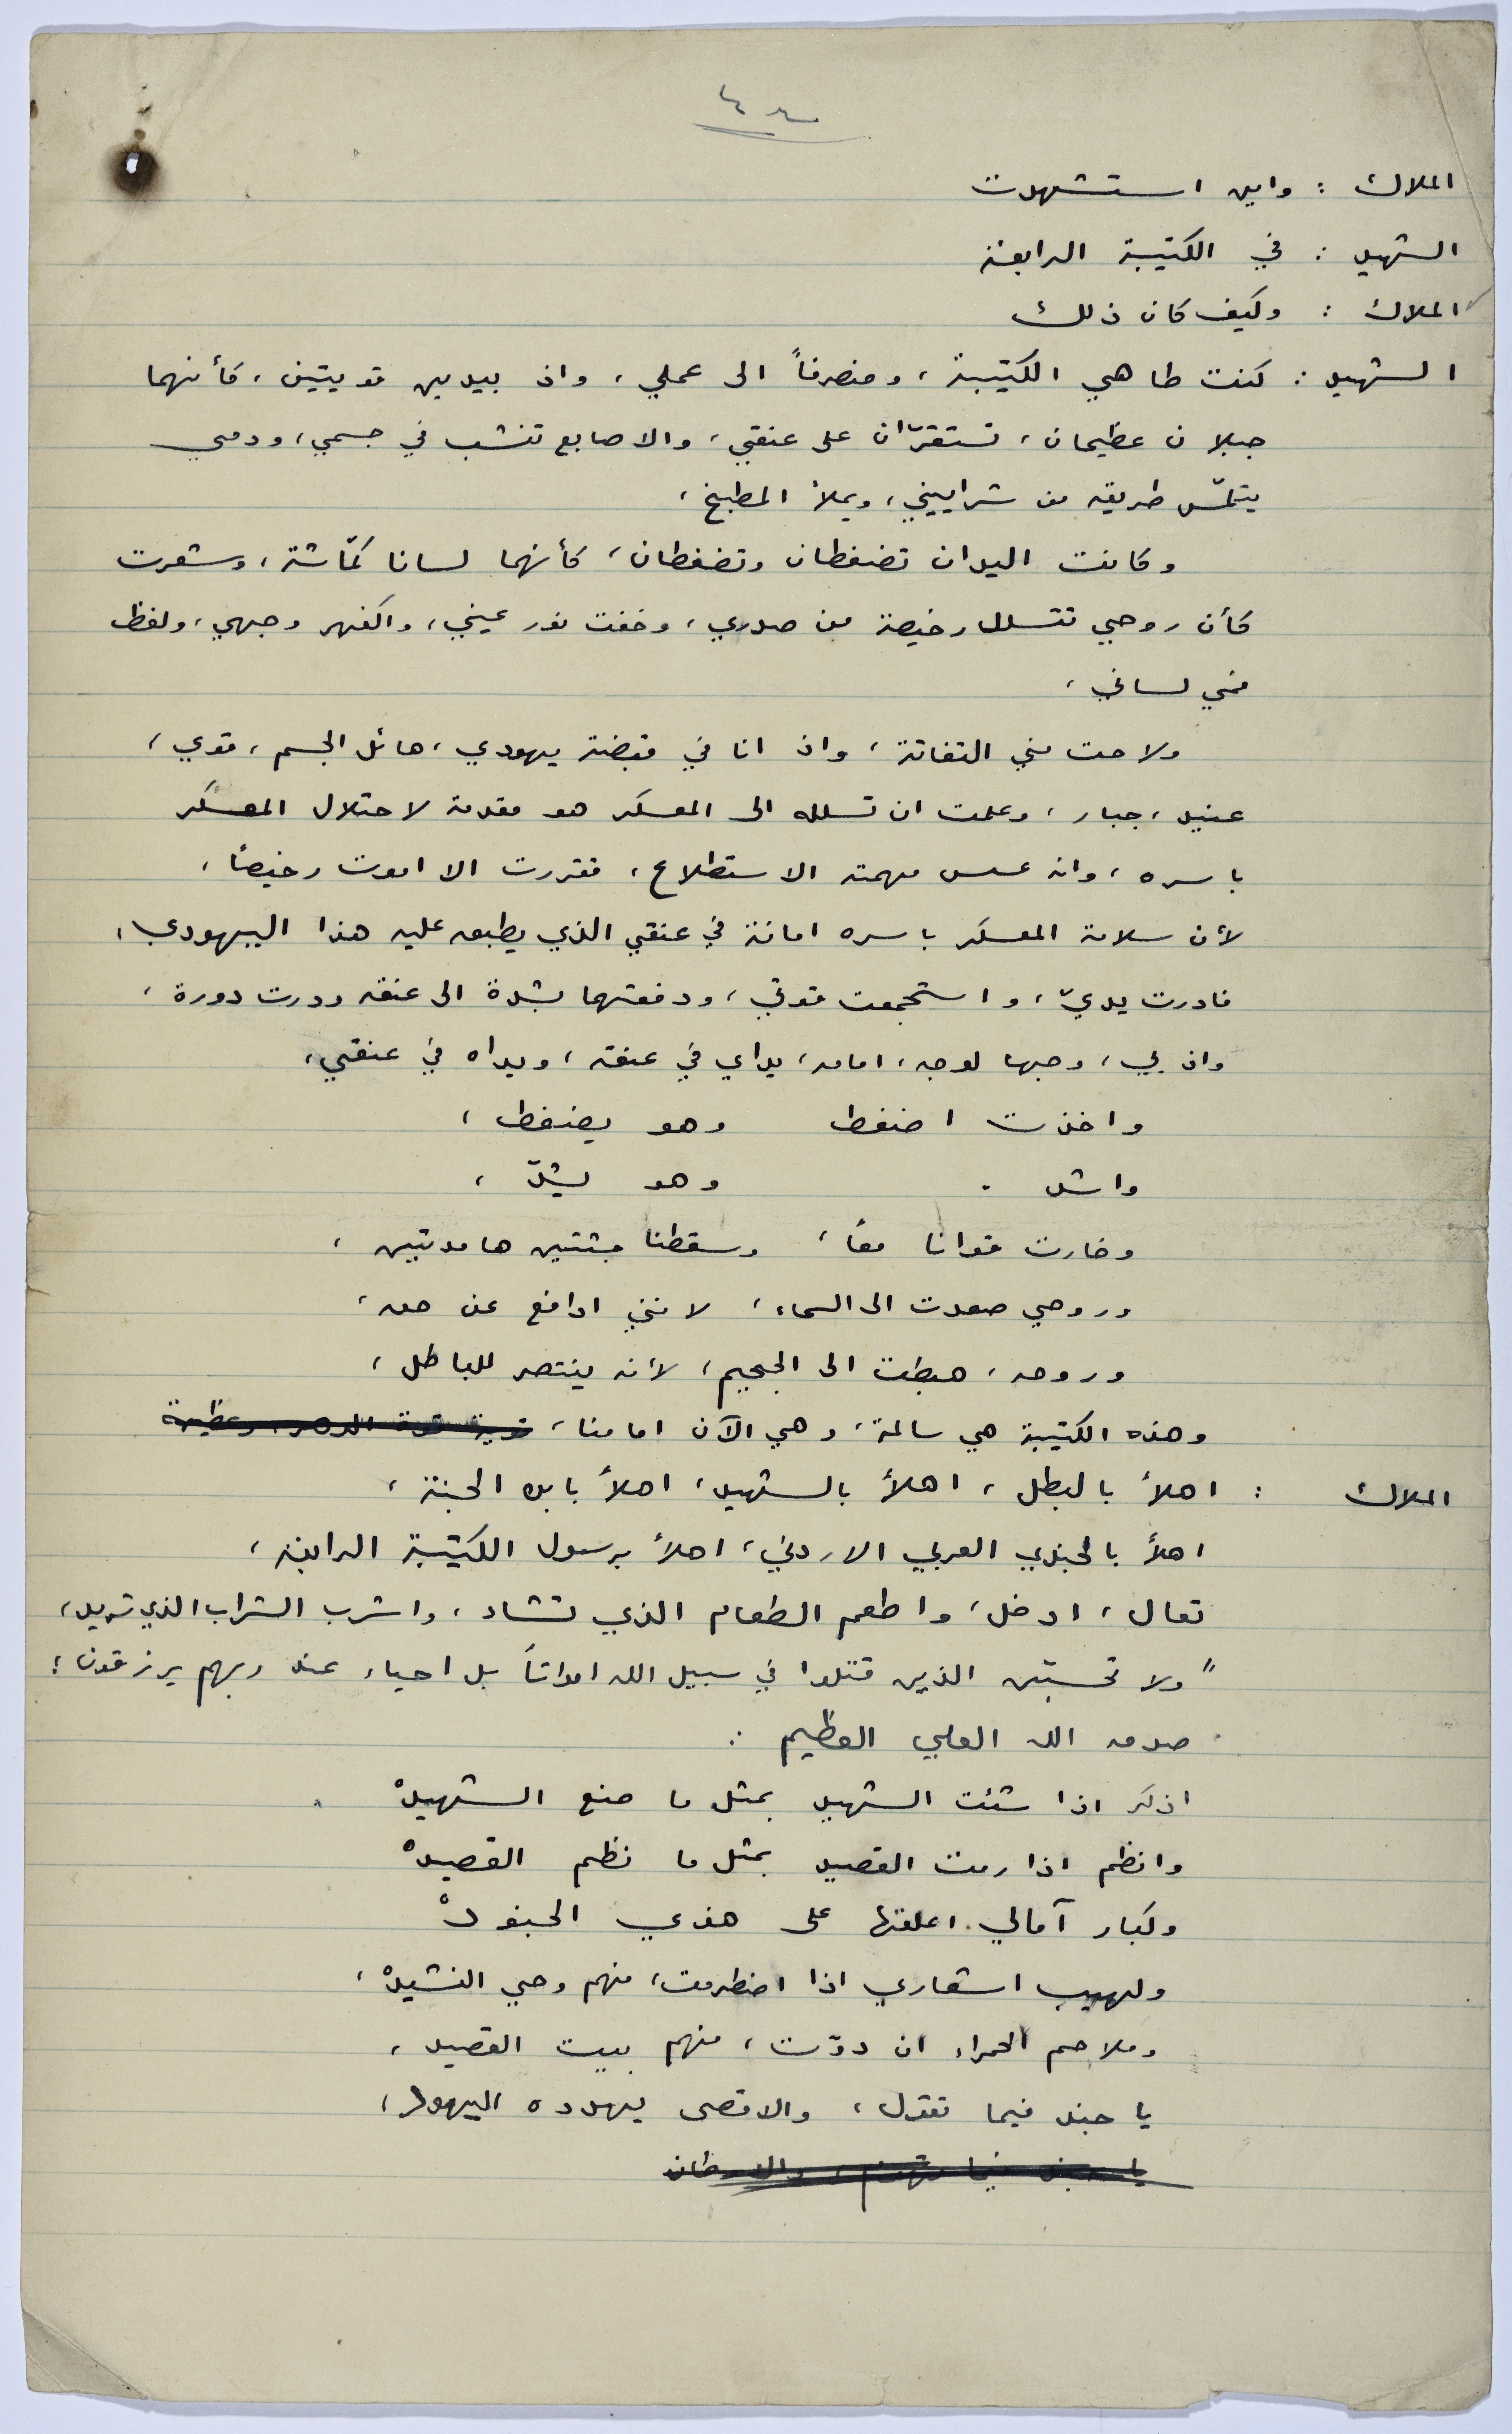 الملاك : واين استشهدت
الشهيد : في الكتيبة الرابعة
الملاك : وكيف كان ذلك
الشهيد : كنت طاهي الكتيبة ، ومنصرفاً الى عملي ، واذ بيدين قويتين ، كأنهما
جبلان عظيمان ، تستقرّان على عنقي ، والاصابع تنشب في جسمي ، ودمي
يتلمّس طريقه من شراييني ، ويملأ المطبخ ،
وكانت اليدان تضغطان وتضغطان ، كأنهما لسانا كمّاشة ، وشعرت
كأن روحي تتسلل رخيصة من صدري ، وخفت نور عيني ، واكفهر وجهي ، ولفظ
فمي لساني ،
ولاحت مني التفاتة ، واذ انا في قبضة يهودي ، هائل الجسم ، قوي ،
عنيد ، جبار ، وعلمت ان تسلله الى المعسكر هو مقدمة لاحتلال المعسكر
باسره ، وانه عسس مهمته الاستطلاع ، فقررت الا اموت رخيصاً ،
لأن سلامة المعسكر باسره امانة في عنقي الذي يطبق عليه هذا اليهودي ،
فادرت يديّ ، واستجمعت قوتي ، ودفعتهما بشدة الى عنقه ودرت دورة ،
واذ بي ، وجها لوجه ، امامه ، يداي في عنقه ، ويداه في عنقي ،
واخذت اضغط وهو يضغط ،
واشد . وهو يشدّ ،
وخارت قوانا معاً ، وسقطنا جثتين هامدتين ،
وروحي صعدت الى السماء ، لانني ادافع عن حق ،
وروحه ، هبطت الى الجحيم ، لأنه ينتصر للباطل ،
وهذه الكتيبة هي سالمة ، وهي الآن امامنا ،
الملاك : اهلاً بالبطل ، اهلاً بالشهيد ، اهلاً بابن الجنة ،
اهلاً بالجندي العربي الاردني ، اهلاً برسول الكتيبة الرابعة ،
تعال ، ادخل ، واطعم الطعام الذي تشاء ، واشرب الشراب الذي تريد ،
" ولا تحسبّن الذين قتلوا في سبيل الله امواتاً بل احياء عند ربهم يرزقون ؛
صدق الله العلي العظيم .
اذكر اذا شئت الشهيد بمثل ما صنع الشهيدْ
وانظم اذا رمت القصيد بمثل ما نظم القصيدْ
وكبار آمالي . اعلقها على هذي الجنودْ
ولهيب اشعاري اذا اضطرمت ، منهم وحي النشيدْ ،
وملاحم الحمراء ان دوّت ، منهم بيت القصيد ،
يا جند فيما نقول ، والاقصى يهدده اليهود ،